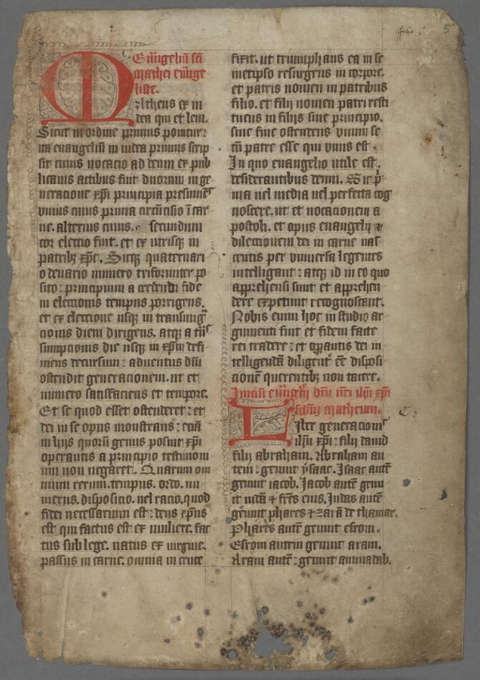 Ewāgeliū scī
mathei ewāge
liste.
Matheus ex iu
dea qui et leui.
Sicut in ordine primus ponitur
ita euangeliū in iudea primus scrip
sit cuius uocacio ad deum ex pub
licanis actibus fuit duorum in ge
neracione xp̄i principia presumēs
unius cuius prima circūcisio ī car
ne. alterius cuius secundum
cor electio fuit. et ex utrisq; in
patribȝ xp̄c. Sicq; quaternari
o denario numero triformiter po
sito: principium a credendi fide
in eleccionis tempus porrigens.
et ex eleccione usq; in transmigᵃ
cionis diem dirigens. atq; a trās
migracionis die usq; in xp̄m defi
niens decursum: aduentus dn̄i
ostendit generacionem. ut et
numero satisfaciens et tempore.
Et se quod esset ostenderet: et
dei in se opus monstrans: eciā
in hiis quorū genus posuit xp̄i
operantis a principio testimoni
um non negaret. Quarum om
nium rerum. tempus. ordo. nu
merus. disposicio. uel racio. quod
fidei necessarium est: deus xp̄us
est qui factus est ex muliere. fac
tus sub lege. natus ex uirgine.
passus in carne. omnia in cruce
fixit. ut triumphans ea in se
metipso resurgens in corpore.
et patris nomen in patribus
filio. et filii nomen patri resti
tuens in filiis sine principio.
sine fine ostendens unum se
cū patre esse qui unus est.
In quo euangelio utile est.
desiderantibus deum. Sic p̄
ma uel media uel perfecta cog
noscere. ut et uocacionem a
postoli. et opus euangelii et
dileccionem dei in carne nas
centis per uniuersa legentes
intelligant: atq; id in eo quo
apprehensi sunt et apprehen
dere expetunt recognoscant.
Nobis enim hoc in studio ar
gumenti fuit et fidem facte
rei tradere: et operantis dei in
telligendā diligenter esse disposi
cionē querentibȝ non tacere.
Iniciū ewāgelii dn̄i nr̄i ih̄u xp̄i
scd̄m matheum.
Liber generacionis
ih̄u xp̄i: filii dauid
filii abraham. Abraham au
tem: genuit ysaac. Isaac autē
genuit iacob. Iacob autē genu
it iudā et fratres eius. Iudas autē
genuit phares et zarā de thamar.
Phares autē genuit esrom.
Esrom autem genuit aram.
Aram autē: genuit aminadab.